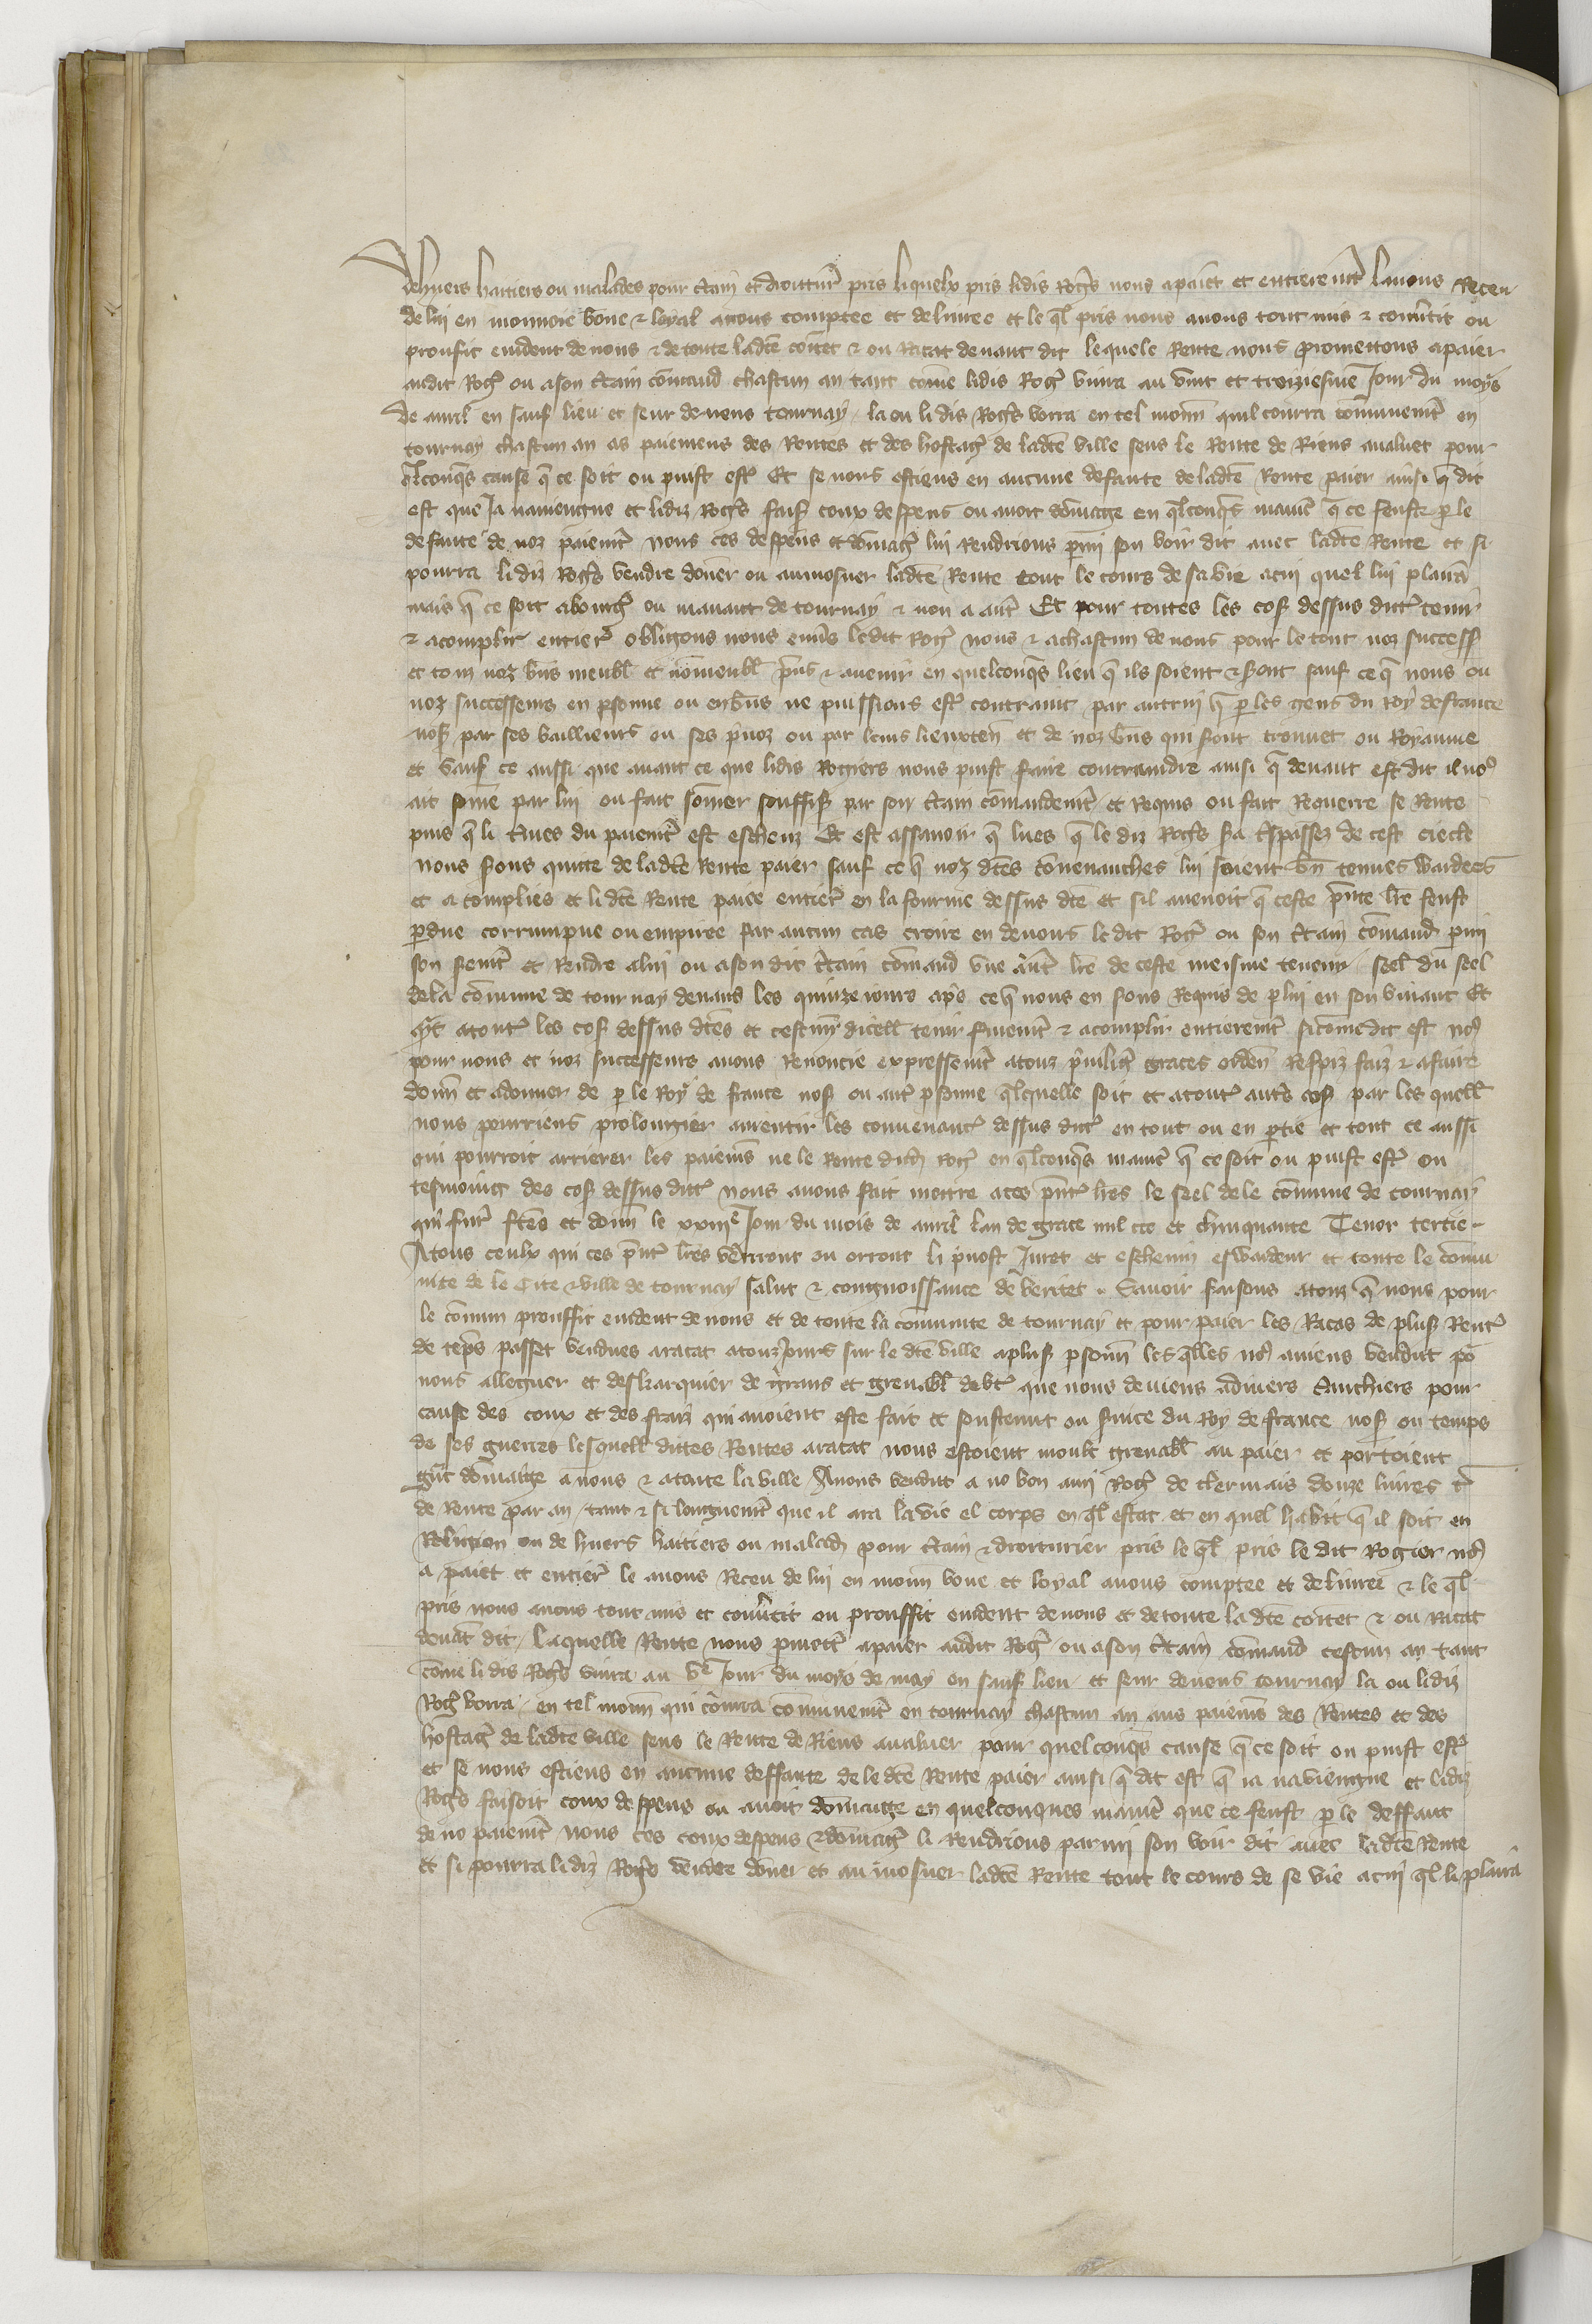 dehuers haittiers ou malades pour c̃tain et droiturr̃ pris liquelx pris lidis Rog̃s nous a paiet et entierem̃t lauons Receu
de lui en monnoie bone & loyal a nous comptee et deliuree et le q̃l pris nous auons tout mis & conũtit ou
proufit euident de nous & de toute ladc̃e coĩtet & ou racat deuant dit lequele Rente nous promettons a paier
audit Rog̃ ou a son c̃tain cõmand chascun an tant cõme lidis Rog̃ viura au vint et troiziesme Jour du moys
de auril en sauf lieu et seur deuens tournay la ou li dis Rog̃s vorra en tel monñ quil courra cõmunem̃t en
tournay chascun an as paiemens des Rentes et des hostag̃ de ladc̃e ville sens le Rente de Riens aualuer pour
q̃lconq̃s cause q̃ ce soit ou puist est̃ Et se nous estiens en aucune defaute de ladc̃e Rente paier ainsi q̃ dit
est que Ja nauiengne et lidiz Rog̃s fais̃ coux despens ou auoit dõmage en q̃lconq̃s manie᷑ q̃ ce feust p̱ le
defaute de noz paiem̃t nous ces despens et dõmag̃ lui Rendrions p̱mi son voir dit auec ladc̃e Rente et si
pourra lidiz Rog̃s vendre doner ou aumosner ladc̃e Rente tout le cours de sa vie a cui quel lui plaira
mais q̃ ce soit a bourg̃ ou manant de tournay & non a aut̃ Et pour toutes les cos̃ dessus dict̃ tenir
& acomplir entier̃ obligons nous enũs ledit Rog̃ nous & a chascun de nous pour le tout noz success̃
et touz noz biñs meubl̃ et nõmeubl̃ p̃ns & auenir en quelconq̃s lieu q̃ ils soient & sont sauf ce q̃ nous ou
noz successeurs en p̱sonne ou en bñs ne puissions est̃ contraint par autrui q̃ p̱ les gens du Roy de france
nos̃ par ses baillieurs ou ses p̃uoz ou par leurs lieuxteñ et de noz bñs qui sont trouuet ou Royaume
et sauf ce aussi que auant ce que lidis Rogiers nous puist faire contraindre ainsi q̃ deuant est dit il no9
ait somme par lui ou fait sõmer souffis̃ par son c̃tain cõmandem̃t et Requis ou fait Requerre se Rente
puis q̃ li t̃mes du paiem̃t est escheuz Et est assauoir q̃ lues q̃ le diz Rog̃s s̃a tr̃spassez de cest ciecle
nous s̃ons quitte de ladc̃e Rente paier sauf ce q̃ noz dc̃es conuenanches lui soient bñ tenues wardees
et acomplies et li dc̃e Rente paiee entier̃ en la fourme dessus dc̃e et sil auenoit q̃ ceste p̃nte lr̃e feust
p̱due corrumpue ou empiree par aucun cas croire en deuons le dit Rog̃ ou son c̃tain cõmand p̱mi
son serm̃t et Rendre a lui ou a son dit c̃tain cõmand vne aut̃ lr̃e de ceste meisme teneur seel̃ du seel
de la cõmune de tournay deuens les quinze iours ap̃s ce q̃ nous en s̃ons Requis de p̱ lui en son viuant Et
q̃nt a tout̃ les cos̃ dessus dc̃es et cescun̾ dicell̃ tenir fmem̃t & acomplir entierem̃t si cõme dit est no9
pour nous et noz successeurs auons Renoncie expressem̃t a touz p̃uileg̃ graces ordeñ Respiz faiz & a faire
donñ et a donner de p̱ le Roy de france nos̃ ou aut̃ p̱sonne q̃lequelle soit et a tout̃ aut̃s cos̃ par les quell̃
nous pourriens prolongier anientir les conuenanc̃ dessus dict̃ en tout ou en p̱tie et tout ce aussi
qui pourroit arrierer les paiem̃s ne le Rente dud̃ Rog̃ en q̃lconq̃s manie᷑ q̃ ce soit ou puist est̃ en
tesmoing des cos̃ dessus dict̃ nous auons fait mettre a ces p̃nt̃ lr̃es le seel de le cõmune de tournay
qui fur̃ fc̃es et donñ le xxiiie Jour du mois de auril lan de grace mil ccc et chinquante Tenor tertie ..
A tous ceulx qui ces p̃nt̃ lr̃es verront ou orront li p̃uost Juret et escheuin eswardeur et toute le cõmu
nite de le Cite & ville de tournay salut & congnoissance de veritet .. Sauoir faisons a touz q̃ nous pour
le cõmun prouffit euident de nous et de toute la cõmunite de tournay et pour paier les Racas de plus̃ Rent̃
de tẽps passet vendues a racat a touz Jours sur le dc̃e ville a plus̃ p̱sonñ les q̃lles no9 auiens vendut po᷑
nous allegier et deskarquier de grans et greuabl̃ debt̃ que nous deuiens a diuers creanchiers pour
cause des coux et des fraiz qui auoient este fait et soustenut ou s̃uice du Roy de france nos̃ ou temps
de ses guerres lesquell̃ dittes Rentes a racat nous estoient moult greuabl̃ au paier et portoient
g̃nt dõmaige a nous & a toute la ville Auons vendut a no bon ami Rog̃ de clermais douze liures t̃
de Rente par an tant & si longuem̃t que il ara la vie el corps en q̃l estat et en quel habit q̃ il soit en
Religion ou dehuers haittiers ou malad̃ pour c̃tain & droiturier pris le q̃l pris le dit Rogier no9
a paiet et entier̃ le auons Receu de lui en monñ bone et loyal a nous comptee et deliuree & le q̃l
pris nous auons tout mis et conũtit ou prouffit euident de nous et de toute la dc̃e coĩtet & ou racat
deuãt dit Laquelle Rente nous p̱mett̃ a paier audit Rog̃ ou a son c̃tain cõmand cescun an tant
cõme li dis Rog̃s viura au ve Jour du moys de may en sauf lieu et seur deuens tournay la ou lidiz
Rog̃ vorra en tel monñ qui courra cõmunem̃t en tournay chascun an aus paiem̃s des Rentes et des
hostag̃ de ladc̃e ville sens le Rente de Riens aualuer pour quelconq̃s cause q̃ ce soit ou puist est̃
et se nous estiens en aucune deffaute de le dc̃e Rente paier ainsi q̃ dit est q̃ ia naviengne et lidiz
Rog̃s faisoit coux despens ou auoit dõmaige en quelconques manie᷑ que ce feust p̱ le deffaut
de no paiem̃t nous ces coux despens & dõmag̃ li Rendrions parmi son voir dit auec ladc̃e Rente
et si pourra lidiz Rog̃s vendre doner et aumosner ladc̃e Rente tout le cours de se vie a cui q̃l li plaira